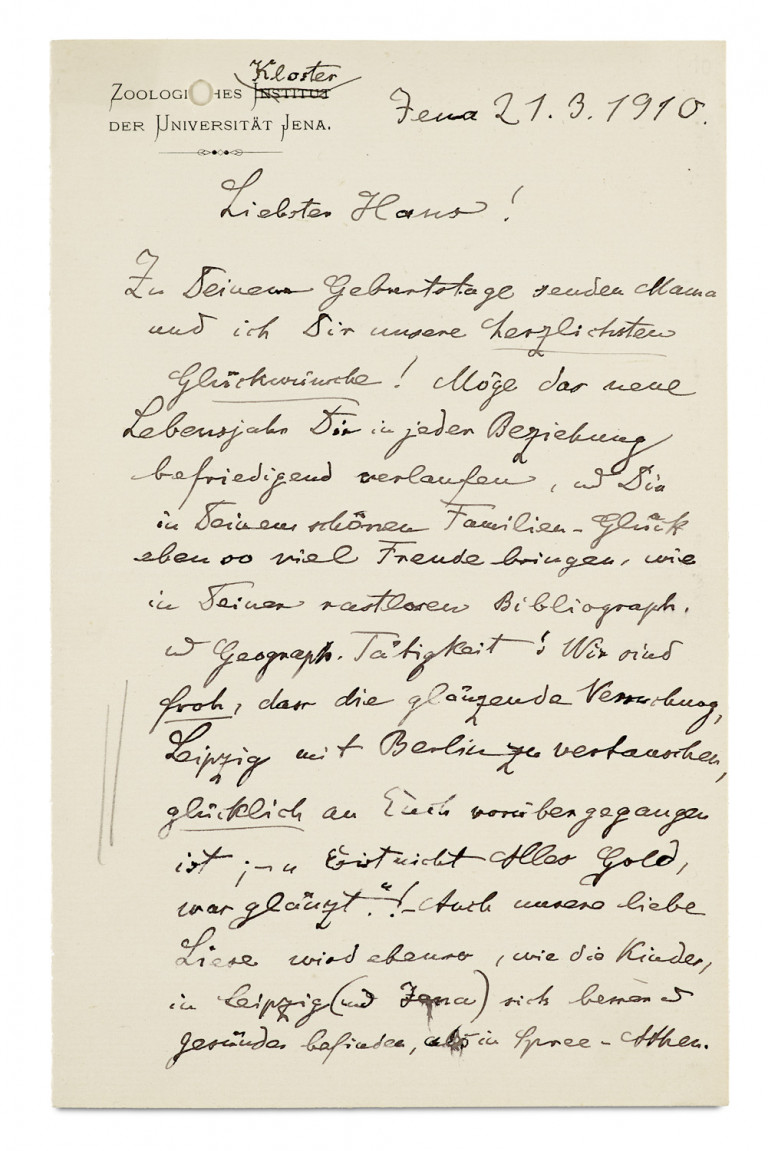 Kloster
ZOOLOGI HES INSTITUT
DER UNIVERSITÄT JENA.
Jena 21. 3. 1910.
Liebster Hans!
Zu Deinem Geburtstage senden Mama
und ich Dir unsere herzlichsten
Glückwünsche! Möge das neue
Lebensjahr Dir in jeder Beziehung
befriedigend verlaufen, und Dir
in Deinem schönen Familien-Glück
eben so viel Freude bringen, wie
in Deiner rastlosen Bibliograph.
u Geograph. Tätigkeit! Wir sind
froh, dass die glänzende Versuchung,
Leipzig mit Berlin zu vertauschen,
glücklich an Euch vorübergegangen
ist; – „Es ist nicht Alles Gold,
was glänzt."! – Auch unsere liebe
Liese wird ebenso, wie die Kinder,
in Leipzig (und Jena) sich besser u
gesünder befinden, als in Spree-Athen.